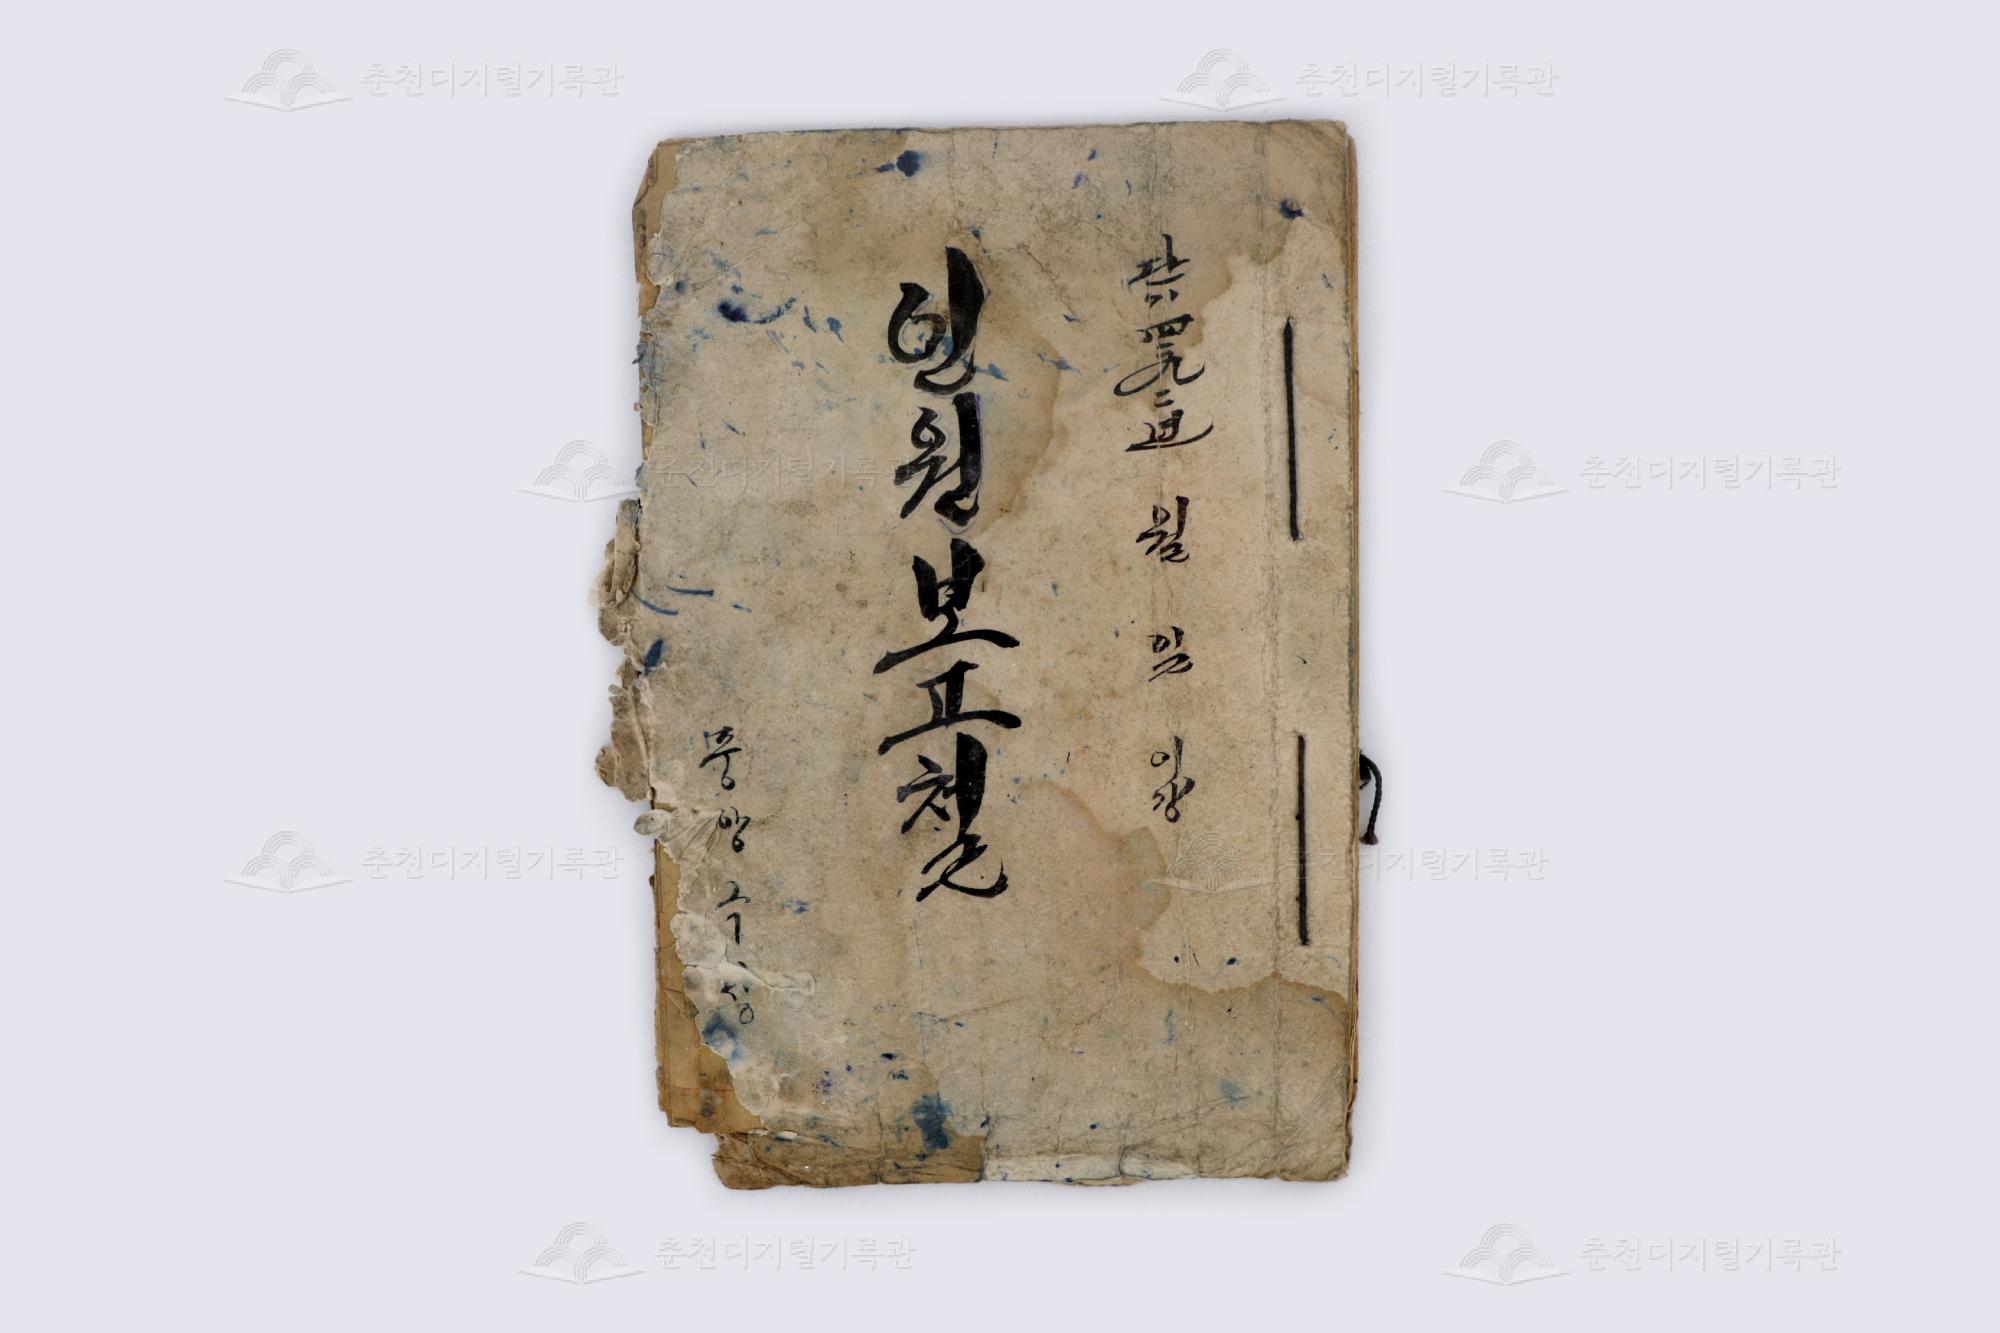 춘천디지털기록관
춘천디지털기록관
四二九二年 월 일
인원보고철
춘천디지털기록관
춘천디지털기록관
춘천디지털기록관
춘천디지털기록관
춘천디지털기록관
춘천디지털기록관